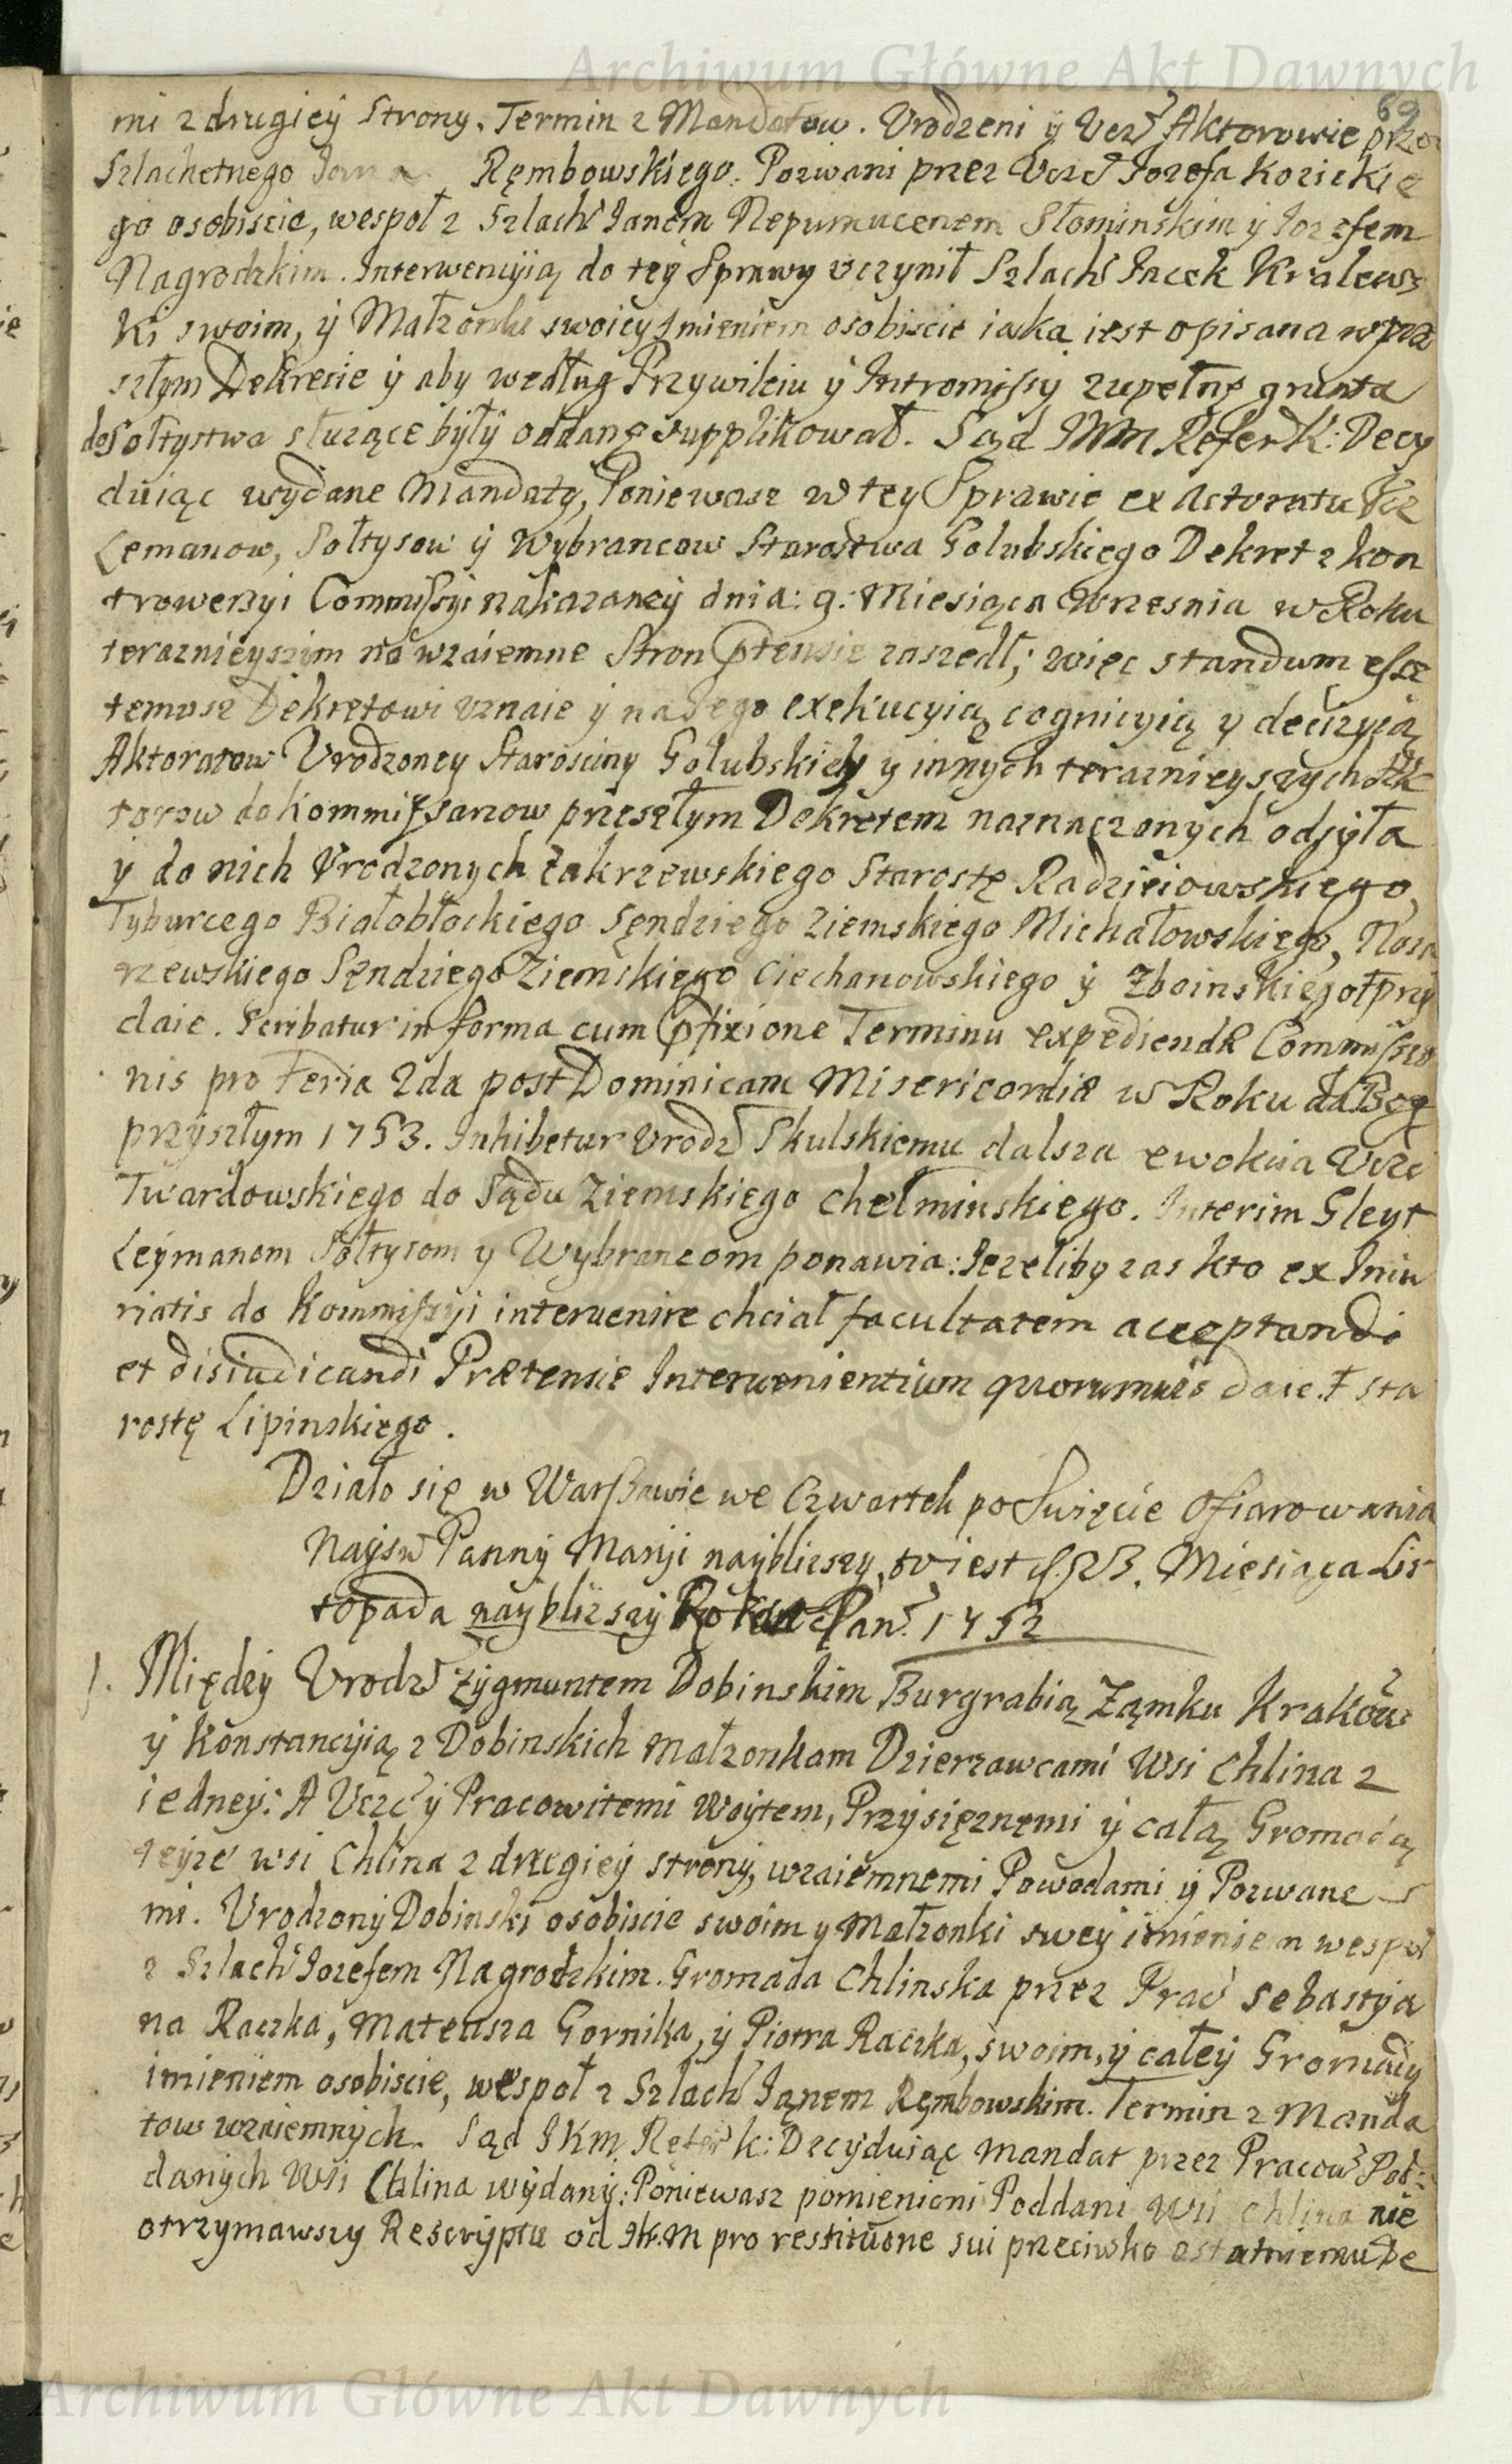 Archiwum Główne Akt Dawnych
69
mi z drugiey Strony. Termin z Mandatow. Vrodzeni ÿ Vcz Aktorowie przez
Szlachetnego Jana Ręmbowskiego. Pozwani przez Vczć Jozefa Kozickie
go osobiscie, wespoł z Szlach Janem Nepumucenem Słominskim ÿ Jozefem
Nagrodzkim. Interwencyią do teÿ Sprawy vczynił Szlach Jacek Kralews
ki swoim, ÿ Małzonki swoiey Jmieniem osobiscie iako iest opisana w prze
szłym Dekrecie ÿ aby według Przywileiu ÿ Intromissy zupełne grunta
do Sołtystwa słuzące byłÿ oddane supplikował. Sąd JKM Refer K: Decy
duiąc wydane Mandaty, Poniewasz w tey Sprawie ex Actoratu Vcz
Lemanow, Sołtysow ÿ Wybrancow Starostwa Golubskiego Dekret z kon
trowersyi Commissyi nakazaneÿ dnia: 9: Miesiąca Wrzesnia w Roku
teraznieyszym na wzaiemne Stron ptensie zaszedł; więc standum esse
temusz Dekretowi vznaie ÿ na Jego exekucyią cognicyią y decizyią
Aktoratow Vrodzoney Starosciny Golubskiey y innych teraznieyszych Ak
torow do Kommissarzow przeszłym Dekretem naznaczonych odsyła
ÿ do nich Vrodzonych Zakrzewskiego Starostę Radzieiowskiego,
Tyburcego Białobłockiego Sęndziego Ziemskiego Michałowskiego, Nosa
rzewskiego Sęndziego Ziemskiego Ciechanowskiego ÿ Zboinskiego Ɨ przy
daie. Scribatur in forma cum pfixione Terminu expediendæ Commissio
nis pro Feria 2da post Dominicam Misericordiæ w Roku da Bog
przÿszłym 1753. Inhibetur Vrodz Skulskiemu dalsza ewokcia Vczc
Twardowskiego do Sądu Ziemskiego Chełminskiego. Interim Gleyt
Leÿmanom Sołtysom y Wybrancom ponawia: Jezeliby zas kto ex Iniu
riatis do Kommissyi intervenire chciał facultatem acceptandi
et disiudicandi Prætensie Intervenientium quorumuis daie. Ɨ sta
rostę Lipinskiego.
Działo się w Warszawie we Czwartek po Swięcie Ofiarowania
Nayśw Panny Maryi nayblizszy, to iest d. 23. Miesiąca Lis
topada nayblizszÿ Roku Pan 1752
1. Międzÿ Vrodz Zygmuntem Dobinskim Burgrabią Zamku Kraków
ÿ Konstancyią z Dobinskich Małzonkam Dzierzawcami Wsi Chlina z
iedneÿ: A Vczć ÿ Pracowitemi Woÿtem, Przysięznemi ÿ całą Gromadą
teÿze wsi Chlina z drugieÿ stronÿ, wzaiemnemi Powodami ÿ Pozwane
mi. Vrodzonÿ Dobinski osobiscie swoim y Małzonki sweÿ imieniem wespoł
z Szlach Jozefem Nagrodzkim. Gromada Chlinska przez Prac Sebastya
na Raczka, Mateusza Gornika, ÿ Piotra Raczka, swoim, ÿ całeÿ Gromady
imieniem osobiscie, wespoł z Szlach Janem Ręmbowskim. Termin z Manda
tow wzaiemnÿch. Sąd JKM. Refer K: Decÿduiąc mandat przez Pracow Pod=
danÿch Wsi Chlina wÿdanÿ: Poniewasz pomienioni Poddani Wsi Chlina nie
otrzymawszy Rescryptu od JKM pro restitutione sui przeciwko ostatniemu De
Archiwum Główne Akt Dawnych